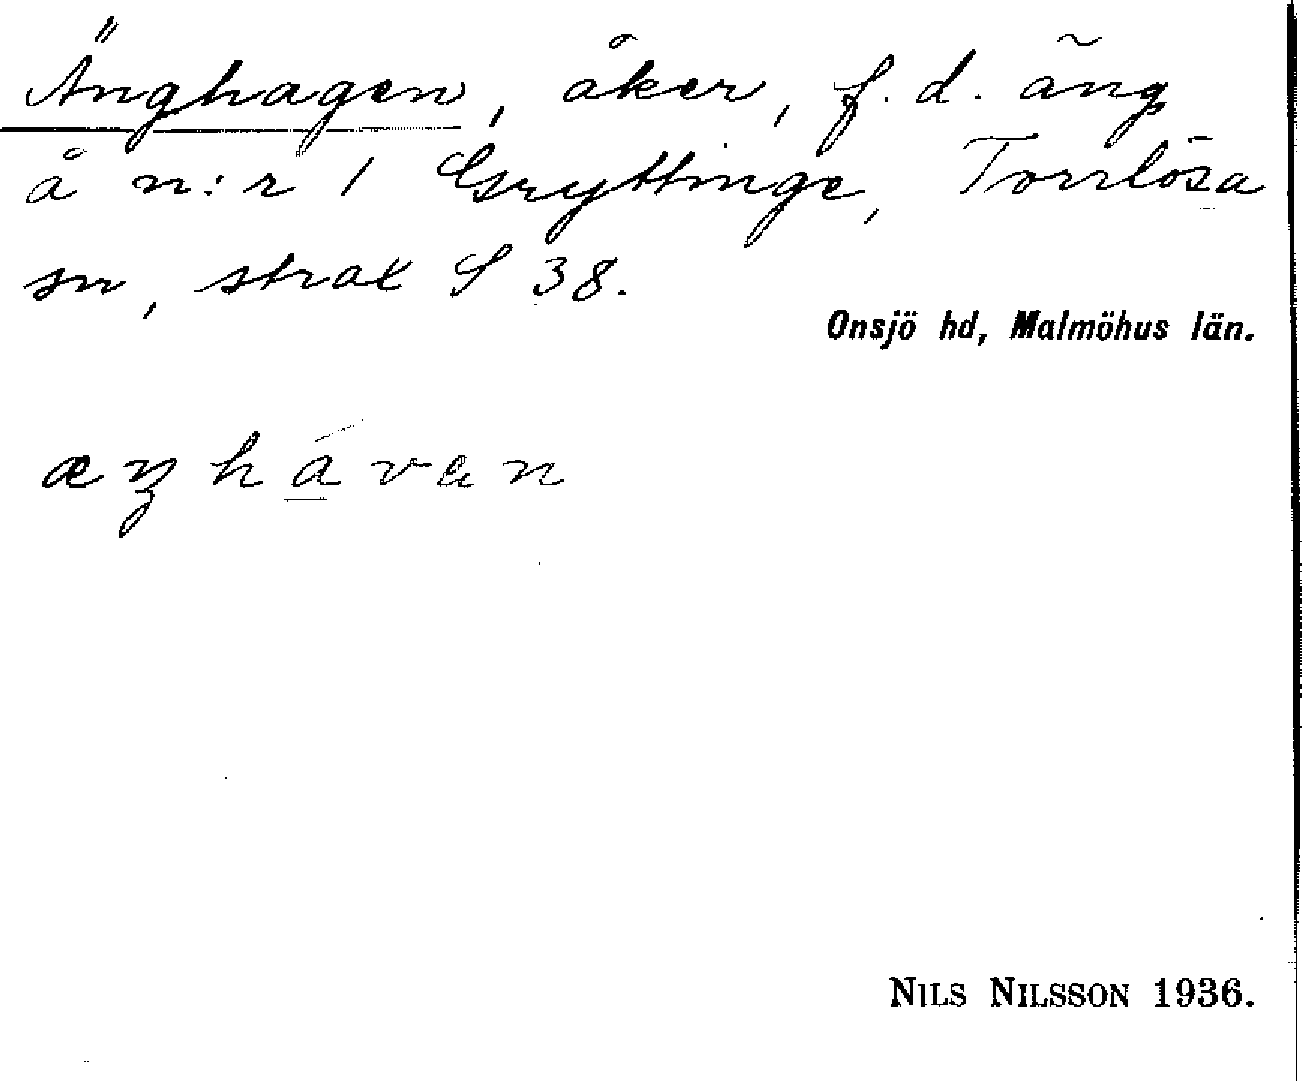 Änghagen, åker, f. d. äng
å n:r 1 Gryttinge, Torrlösa
sn, strax S 38.
Onsjö hd, Malmöhus län.
æŋhávan
NILS NILSSON 1936.